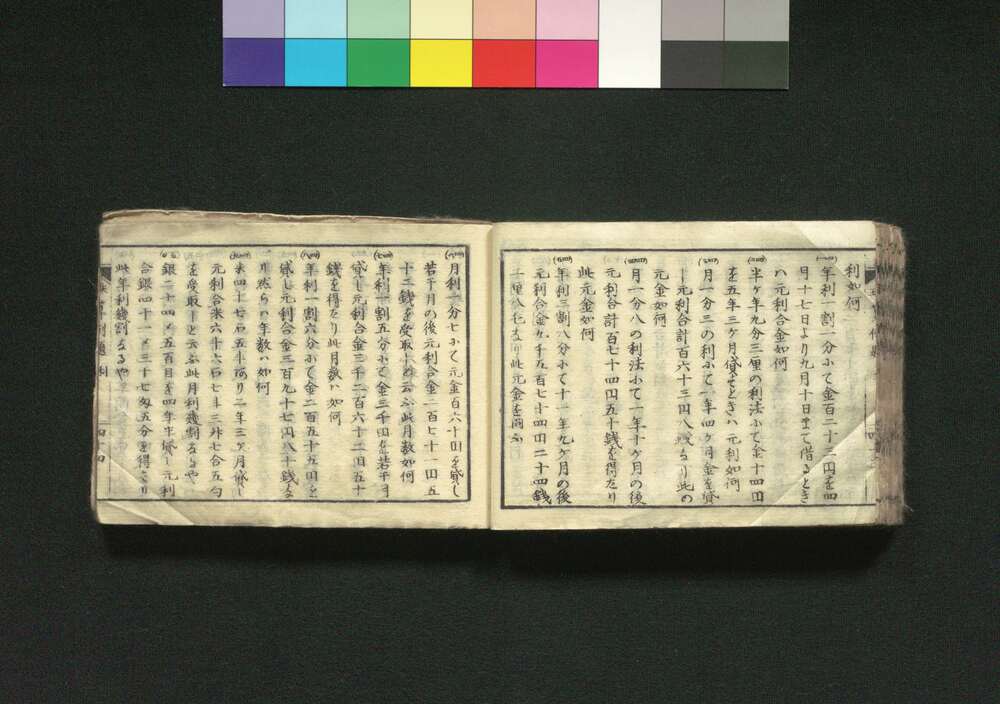 利如何
年利一割一分ふて金百二十二円を四
月十七日より九月十日まで借るとき
ハ元利合金如何
半ヶ年九分三厘の利法ふて金十四円
を五年三ヶ月貸せときハ元利如何
月一分三の利ふて一年四ヶ月金を貸
し元利合計百六十三円八銭なり此の
元金如何
月一分八の利法ふて一年十ヶ月の後
元利合計百七十四円五十銭を得たり
此元金如何
年利三割八分ふて十一年九ヶ月の後
元利合金九千五百七十四円二十四銭
此元金を問ふ
月利一分七ふて元金百六十円を貸し
若干月の後元利合金二百七十一円五
十二銭を受取しと云ふ此月数如何
年利一割五分ふて金三千円を若干月
貸し元利合金三千二百六十二円五十
銭を得たり此月数ハ如何
年利一割六分ふて金二百五十五円を
貸し元利合金三百九十七円八十銭なり
然らハ年数ハ如何
米四十七石五斗あり二年三ヶ月貸し
元利合米六十六石七斗三升七合五勺
を受取しと云ふ此月利幾割なるや
銀二十四〆五百目を四年半貸し元利
合銀四十一〆三十七匁五分を得たり
此年利幾割なるや